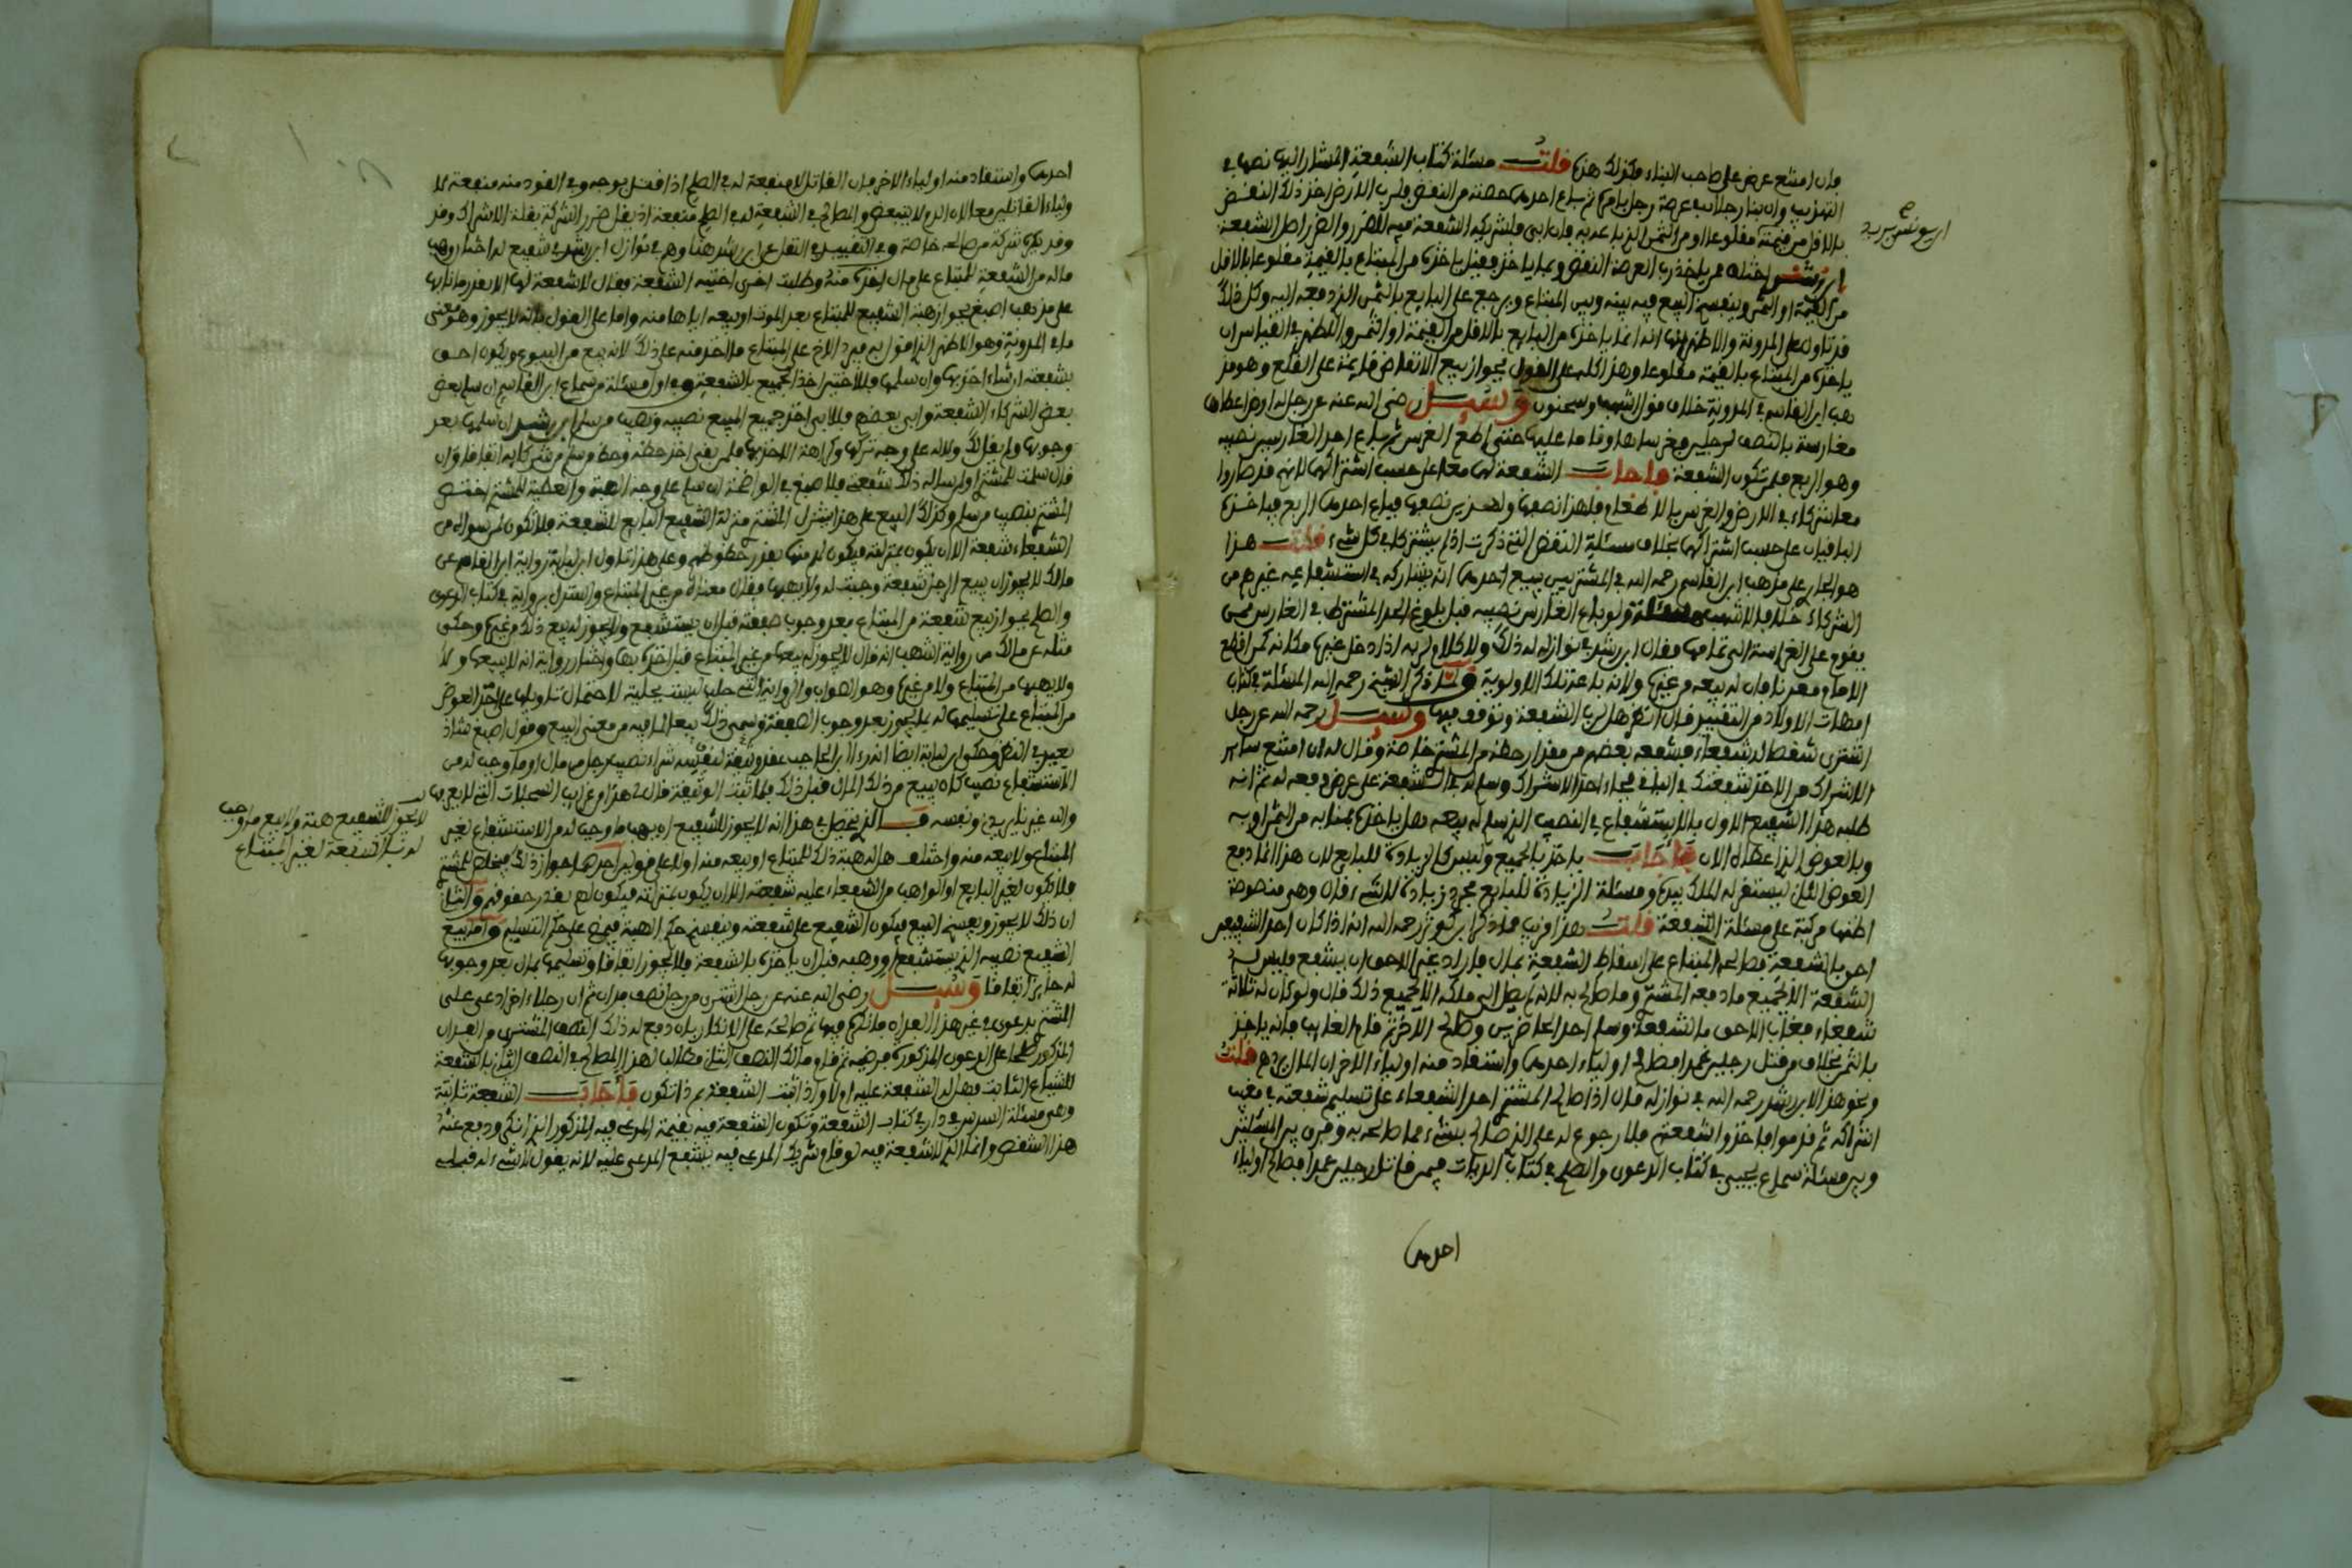 فان امتنع عرض على صاحب البناء فكذلك هذه قلت مسئلة كتاب الشفعة المشار اليها نصها في
التهذيب وان بنا رجلان في عرصة رجل بامره ثم باع احدهما حصته من النقض فلرب الارض اخذ ذلك النقض
بالاقل من قيمته مقلوعا او من الثمن الذي باعه به فان ابى فلشريكه الشفعة فيه للضرر والضرر اصل الشفعة
ابن يونس
ابن رشد اختلف هل ياخذ رب العرصة النقض وبما ياخذه فقيل ياخذه من المبتاع بالقيمة مقلوعا بالاقل
من القيمة او الثمن وينفسخ البيع فيه بينه وبين المبتاع ويرجع على البايع بالثمن الذي دفعه اليه وكل ذلك
قد تاول على المدونة والاظهر انه انما ياخذه من البايع بالاقل من القيمة او الثمن والاظهر في القياس ان
ياخذه من المبتاع بالقيمة مقلوعا وهذا كله على القول بجواز بيع الانقاض قايمة على القلع وهو مذ
هب ابن القاسم في المدونة خلاف قول اشهب وسحنون وسئل رضي الله عنه عن رجل له ارض اعطاها
مغارسة بالنصف لرجلين فغرساها وقاما عليها حتى اطعم الغرس ثم باع احد الغارسين نصيبه
وهو الربع فلمن تكون الشفعة فاجاب الشفعة لهما معا على حسب اشتراكهما لانهم قد صاروا
معا شركاء في الارض والغرس بالاطعام فلهذا نصفها ولهذين نصفها فباع احدهما الربع فياخذه
الباقيان على حسب اشتراكهما بخلاف مسئلة النقض التي ذكرت اذ لم يشتركا في كل شيء قلت هذا
هو الجار على مذهب ابن القاسم رحمه الله في المشتريين يبيع احدهما انه يشاركه في استشفاعه غيرهم من
الشركاء خلافا لاشهب مسئلة ولو باع الغارس نصيبه قبل بلوغ الحد المشترط في الغارس ممن
يقوم على الغراسة الى تمامها فقال ابن رشد في نوازله له ذلك ولا كلام لربه اذا دخل غيره مكانه كمن اقطع
الامام معدنا فان له بيعه من غيره ولانه باعه تلك الاولوية وقد ذكر الشيخ رحمه الله المسئلة في كتاب
امهات الاولاد من التقييد قال انظر هل لربها الشفعة وتوقف فيها وسئل رحمه الله عن رجل
اشترى شقصا له شفعاء فشفعه بعضهم من مقدار حظه من المشتري خاصة وقال له ان امتنع ساير
الاشراك من الاخذ شفعتك في الباقي فجاء احد الاشراك وسلم له في الشفعة على عرض دفعه له ثم انه
طلبه هذا الشفيع الاول بالاستشفاع في النصيب الذي سلم له بيعه هل ياخذه بمنابه من الثمن او به
وبالعوض الذي اعطاه الان فاجاب ياخذ بالجميع وليس كالزيادة للبايع لان هذا انما دفع
العوض الثاني ليستقر له الملك بيده ومسئلة الزيادة للبايع مجرد زيادة لا لشيء قال وهي منصوصة
اظنها مركبة على مسئلة الشفعة قلت هذا قريب مما ذكر ابن كوثر رحمه الله انه اذا كان احد الشفيعين
احق بالشفعة فصالحه المبتاع على اسقاط الشفعة بمال فاراد غير الاحق ان يشفع فليس له
الشفعة الا بجميع ما دفعه المشتري وما صالح به لانه لم يصل الى ملكه الا بجميع ذلك قال ولو كان له ثلاثة
شفعاء فغاب الاحق بالشفعة وسلم احد الحاضرين وصالح الاخر ثم قام الغايب فانه ياخذ
بالثمن بخلاف من قتل رجلين عمدا فصالح اولياء احدهما واستقاد منه اولياء الاخر ان المال يرد قلت
ونحو هذا لابن رشد رحمه الله في نوازله قال اذا صالح المشتري احد الشفعاء على تسليم شفعته في مغيب
اشراكه ثم قدموا فاخذوا شفعتهم فلا رجوع له على الذي صالح بشيء مما صالحه به وفرق بين المسئلتين
وبين مسئلة سماع يحيى في كتاب الدعوى والصلح في كتاب الديات فيمن قاتل رجلين عمدا فصالح اولياء
احدهما
احدهما واستقاد منه اولياء الاخر فان القاتل لا منفعة له في الصلح اذا قتل بوجه وفي القود منه منفعة لا
ولياء القاتلين معا لان الدم لا يتبعض والمصالح في الشفعة له في الصلح منفعة اذ يقل ضرر الشركة بقلة الاشراك وقد
وقد يكره شركة من صالحه خاصة وفي التقييد في التفليس ابن رشد هنا وهي في نوازل ابن رشد في شفيع له اختان وهب
ماله من الشفعة للمبتاع على مال اخذه منه وطلبت احدى اختيه الشفعة فقال لا شفعة لها الا بقدر ما نابها
على مذهب اصبغ بجواز هبة الشفيع للمبتاع بعد الموت او بيعه اياها منه واما على القول بانه لا يجوز وهو معنى
ما في المدونة وهو الاظهر الذي اقول به فيرد الاخ على المبتاع ما اخذ منه على ذلك لانه بيع من البيوع ويكون احق
بشفعته ان شاء اخذها وان سلمها فللاختين اخذ الجميع بالشفعة وفي اول مسئلة من سماع ابن القاسم ان سلم بعض
بعض الشركاء الشفعة وابى بعضهم فللابي اخذ جميع المبيع نصيبه ونصيب من سلم ابن رشد ان سلمها بعد
وجوبها ولم يقل لك ولانه على وجه تركها وكراهة الاخذ بها فلمن بقي اخذ حظه وحظ من سلم من شركايه اتفاقا وان
قال سلمت للمشتري او لم يساله ذلك شفعتي فلاصبغ في الواضحة ان سلم على وجه الهبة والعطية للمشتري اختص
المشتري بنصيب من سلم وكذلك البيع على هذا ينزل المشتري منزلة الشفيع البايع للشفعة فلا تكون لمن سواه من
الشفعاء شفعة الا ان يكون بمنزلته فيكون له منها بقدر حظوظهم وعلى هذا تاول ابن لبابة رواية ابن القاسم عن
مالك لا يجوز ان يبيع الرجل شفعة وجبت له ولا يهبها فقال معناه من غير المبتاع واستدل برواية في كتاب الدعوى
والصلح بجواز بيع شفعته من المبتاع بعد وجوب صفقته قبل ان يستشفع ولا يجوز له بيع ذلك من غيره وحكى
مثله عن مالك من رواية اشهب انه قال لا يجوز له بيعها من غير المبتاع قبل اخذه بها واختار رواية انه لا يبيعها ولا
ولا يهبها من المبتاع ولا من غيره وهو الصواب والرواية التي جلب ليست بجلية لاحتمال تاويلها على اخذ العوض
من المبتاع على تسليمها له بما يجوز بعد وجوب الصفقة وسمى ذلك بيعا لما فيه من معنى البيع وقول اصبغ شاذ
بعيد في النظر وحكى ابن لبابة ايضا انه راى ابن الحاجب عقد وثيقة لنفسه شراء نصيب رجل من مال او ما وجب له من
الاستشفاع نصيب كان بيع من ذلك المال قبل ذلك فلما تمت الوثيقة قال هذا من غرايب السجلات التي لا يعرفها
والله غيري ونفسه قال الذي يتحصل في هذا انه لا يجوز للشفيع ان يهب ما وجب له من الاستشفاع لغير
المبتاع ولا بيعه منه واختلف هل له هبة ذلك للمبتاع او بيعه منه ام لا على قولين احدهما جواز ذلك فيختص المشتري
لا يجوز للشفيع هبة ولا بيع ما وجب
له من الشفعة لغير المبتاع
فلا تكون لغير البايع او الواهب من الشفعاء عليه شفعة الا ان يكون بمنزلته فيكون لهم بقدر حقوقهم والثاني
ان ذلك لا يجوز ويفسخ البيع فيكون الشفيع على شفعته وينفسخ حكم الهبة فيمضي على حكم التسليم واما بيع
الشفيع نصيبه الذي يستشفع او وهبه قبل ان ياخذه بالشفعة فلا يجوز اتفاقا وتسليمها بمال بعد وجوبها
له جايز اتفاقا وسئل رضي الله عنه عن رجل اشترى من رجل نصف فدان ثم ان رجلا اخر ادعى على
المشتري بدعوى في غير هذا الفدان فانكره فيها ثم صالحه على الانكار بان دفع له ذلك النصف المشترى من الفدان
المذكور صلحا على الدعوى المذكورة فرضيه ثم قام مالك النصف الثاني فطالب لهذا المصالح في النصف الثاني بالشفعة
للشياع الثابت فهل له الشفعة عليه ام لا واذا ثبتت الشفعة بم ذا تكون فاجاب الشفعة ثابتة
وهي مسئلة السدس في دار في كتاب الشفعة وتكون الشفعة فيه بقيمة المدعى فيه المذكور الذي انكر ودفع عنه
هذا الشقص وانما الذي لا شفعة فيه لو قام شريك المدعى فيه يشفع المدعى عليه لانه يقول لا شيء له قبلي